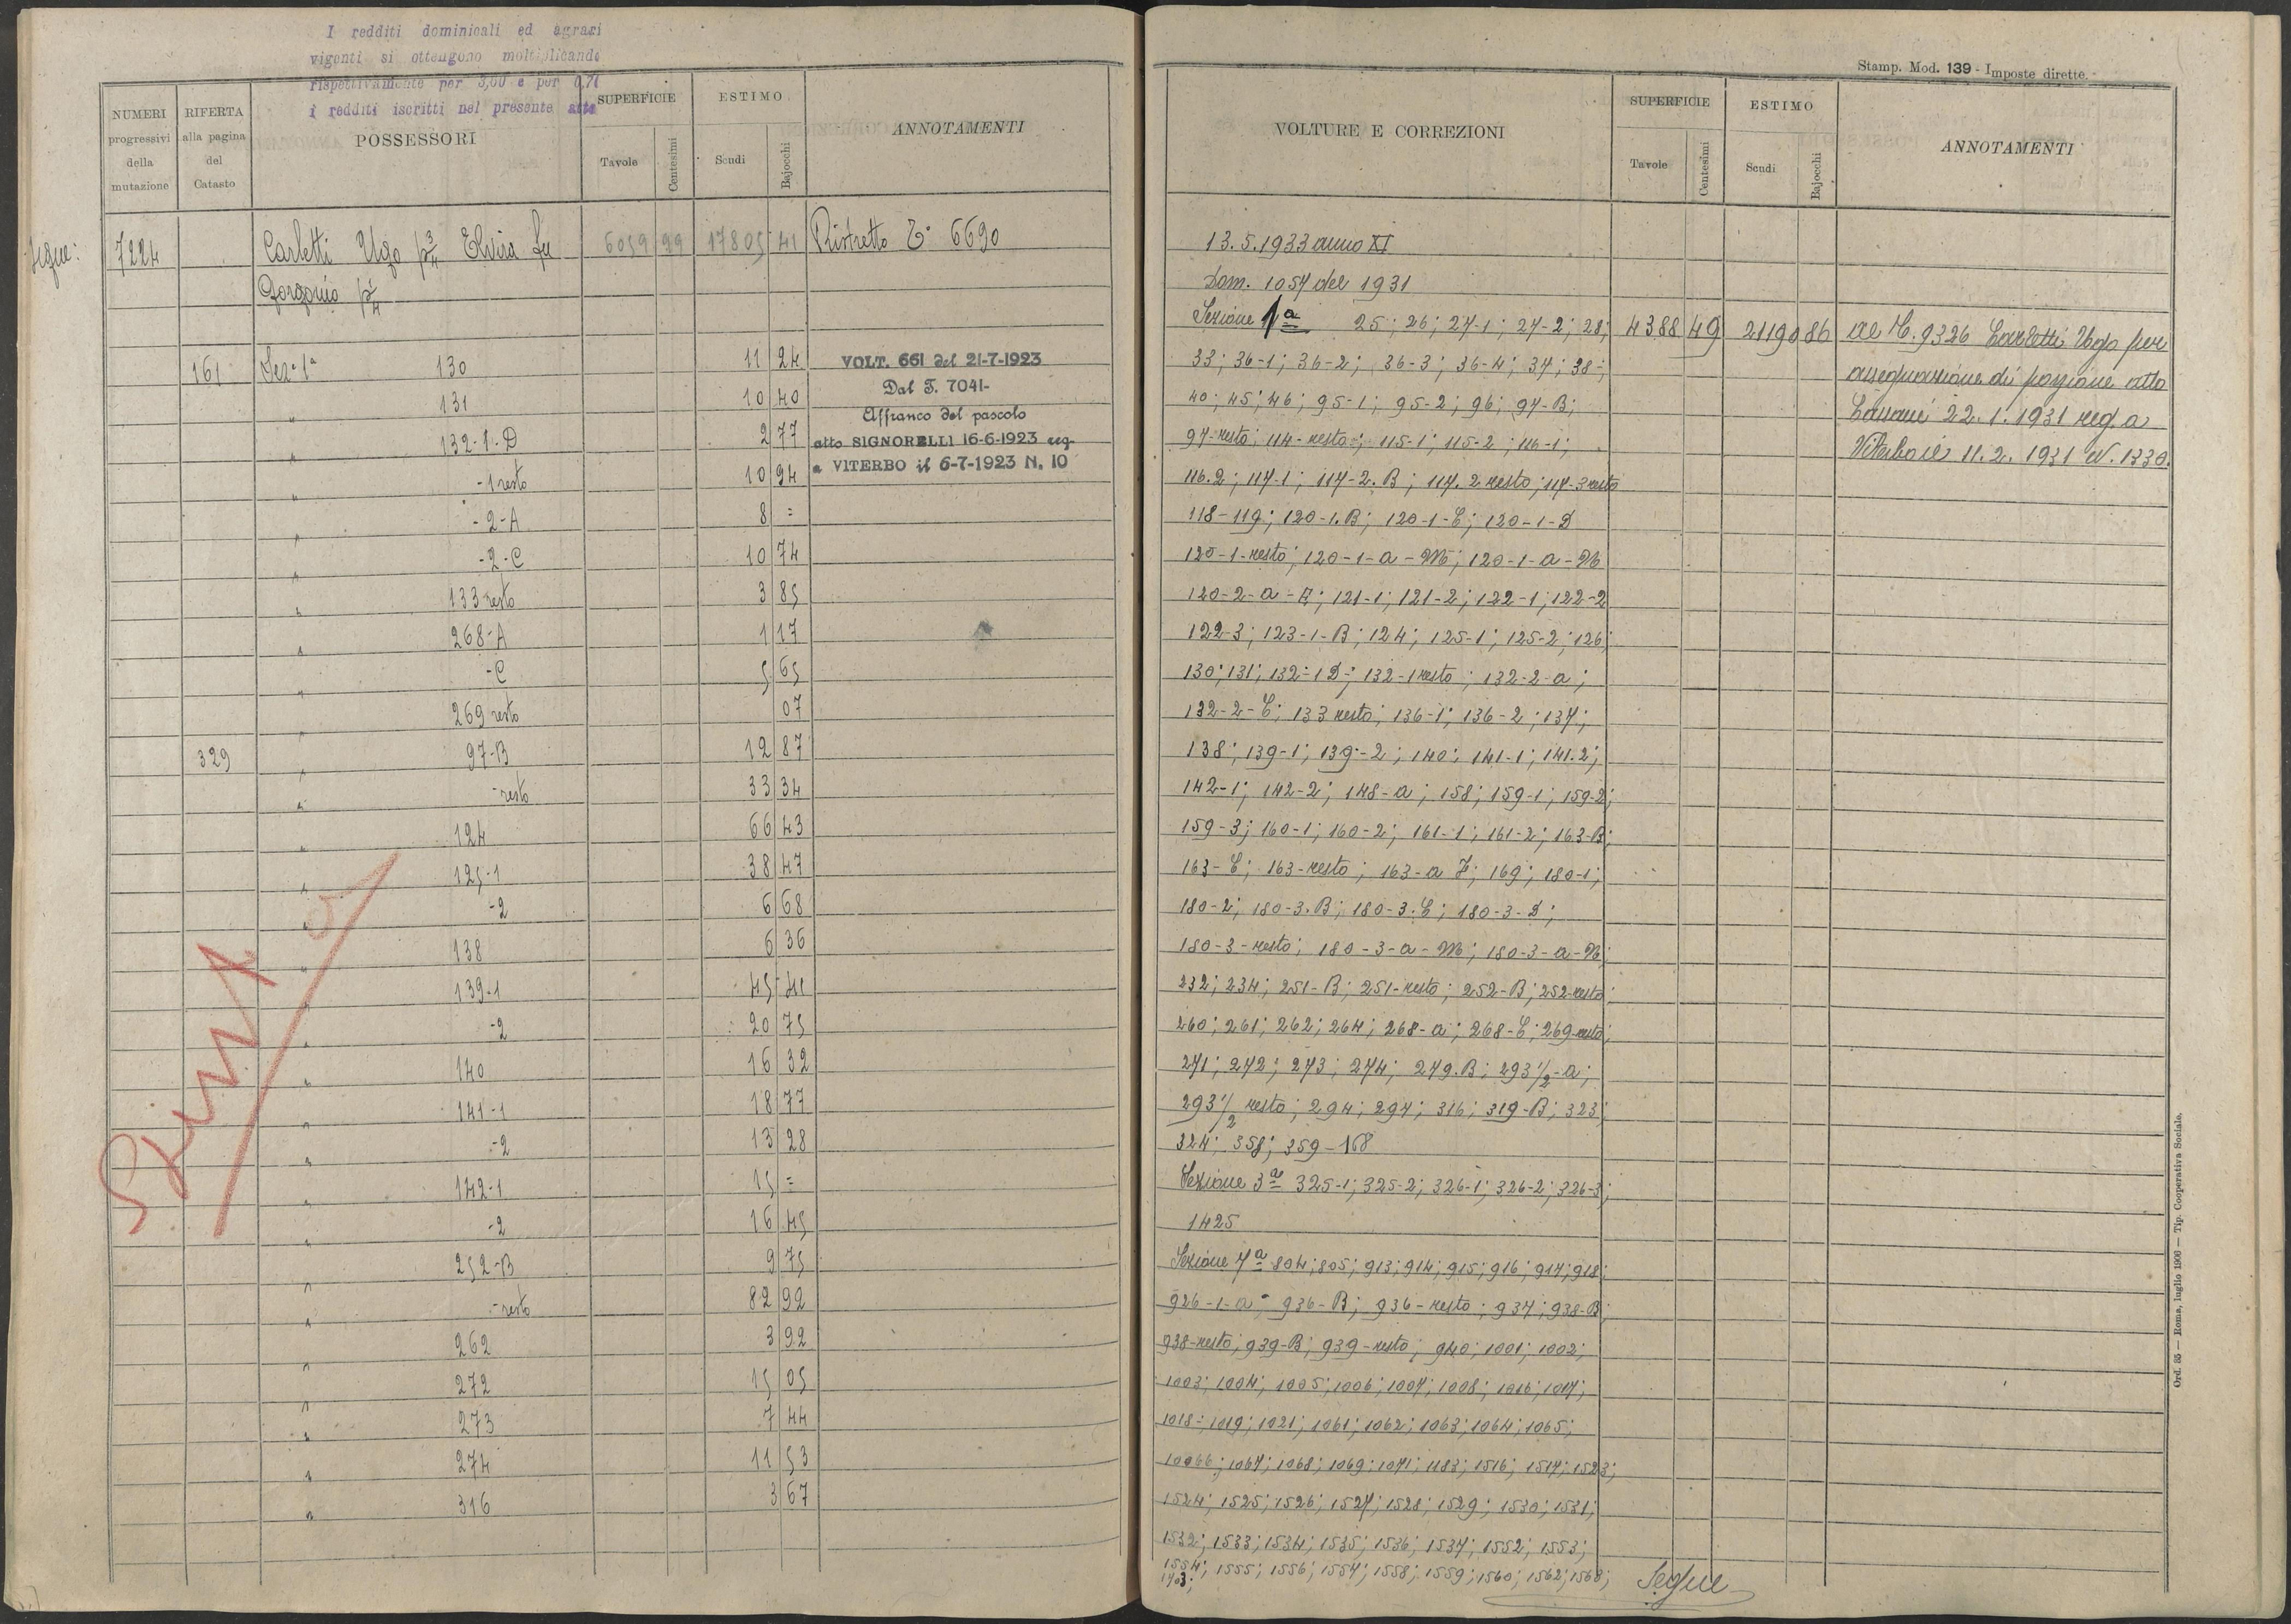 I redditi dominicali ed agrari
vigenti si ottengono moltiplicando
rispettivamente per 3,60 e per 0,71
i redditi iscritti nel presente atto
NUMERI progressivi della mutazione
RIFERTA alla pagina del Catasto
POSSESSORI
SUPERFICIE
Tavole Centesimi
ESTIMO
Scudi Bajocchi
ANNOTAMENTI
Segue: 7224 Carletti Ugo p 3/4 Elvira fu 6059 99 17805 41 Ristretto T. 6690
Gorgonio p 1/4
161 Sez. 1a 130 11 24 VOLT. 661 del 21-7-1923
" 131 10 40 Dal T. 7041-
" 132-1-D 2 77 Affranco del pascolo
" -1 resto 10 94 atto SIGNORELLI 16-6-1923 reg.
" -2-A 8 = a VITERBO il 6-7-1923 N. 10
" -2-C 10 74
" 133 resto 3 85
" 268-A 1 17
" -C 5 65
" 269 resto 07
329 " 97-B 12 87
" -resto 33 34
" 124 66 43
" 125-1 38 47
" -2 6 68
" 138 6 36
" 139-1 45 41
" -2 20 75
" 140 16 32
" 141-1 18 77
" -2 13 28
" 142-1 15 =
" -2 16 45
" 252-B 9 75
" -resto 82 92
" 262 3 92
" 272 15 05
" 273 7 44
" 274 11 53
" 316 3 67
Stamp. Mod. 139 - Imposte dirette.
VOLTURE E CORREZIONI
SUPERFICIE
Tavole Centesimi
ESTIMO
Scudi Bajocchi
ANNOTAMENTI
13.5.1933 anno XI
Dom. 1057 del 1931
Sezione 1a 25; 26; 27-1; 27-2; 28; 4388 49 21190 86 al T. 9326 Carletti Ugo per
33; 36-1; 36-2; 36-3; 36-4; 37; 38-; assegnazione di porzione atto
40; 45; 46; 95-1; 95-2; 96; 97-B; 22.1.1931 reg. a
97-resto; 114-resto-; 115-1; 115-2; 116-1; Viterbo il 11.2.1931 N. 1330.
116.2; 117-1; 117-2.B; 117.2 resto; 117-3 resto
118-119; 120-1.B; 120-1-C; 120-1-D
120-1-resto; 120-1-a-M; 120-1-a-N
120-2-a-; 121-1; 121-2; 122-1; 122-2
122-3; 123-1-B; 124; 125-1; 125-2; 126;
130; 131; 132-1 D-; 132-1 resto; 132-2-a;
132-2-C; 133 resto; 136-1; 136-2; 137;
138; 139-1; 139-2; 140; 141-1; 141.2;
142-1; 142-2; 148-a; 158; 159-1; 159-2;
159-3; 160-1; 160-2; 161-1; 161-2; 163-B;
163-C; 163-resto; 163-a; 169; 180-1;
180-2; 180-3.B; 180-3.C; 180-3-D;
180-3-resto; 180-3-a-M; 180-3-a-N;
232; 234; 251-B; 251-resto; 252-B; 252-resto;
260; 261; 262; 264; 268-a; 268-C; 269-resto;
271; 272; 273; 274; 279.B; 293 1/2-a;
293 1/2 resto; 294; 297; 316; 319-B; 323;
324; 358; 359-168
Sezione 3a 325-1; 325-2; 326-1; 326-2; 326-3;
1425
Sezione 7a 804; 805; 913; 914; 915; 916; 917; 918;
926-1-a; 936-B; 936-resto; 937; 938-B;
938-resto; 939-B; 939-resto; 940; 1001; 1002;
1003; 1004; 1005; 1006; 1007; 1008; 1016; 1017;
1018-; 1019; 1021; 1061; 1062; 1063; 1064; 1065;
10066; 1067; 1068; 1069; 1071; 1183; 1516; 1517; 1523;
1524; 1525; 1526; 1527; 1528; 1529; 1530; 1531;
1532; 1533; 1534; 1535; 1536; 1537; 1552; 1553;
1554; 1555; 1556; 1557; 1558; 1559; 1560; 1562; 1568; Segue
1703;
Ord. 85 — Roma, luglio 1906 — Tip. Cooperativa Sociale.